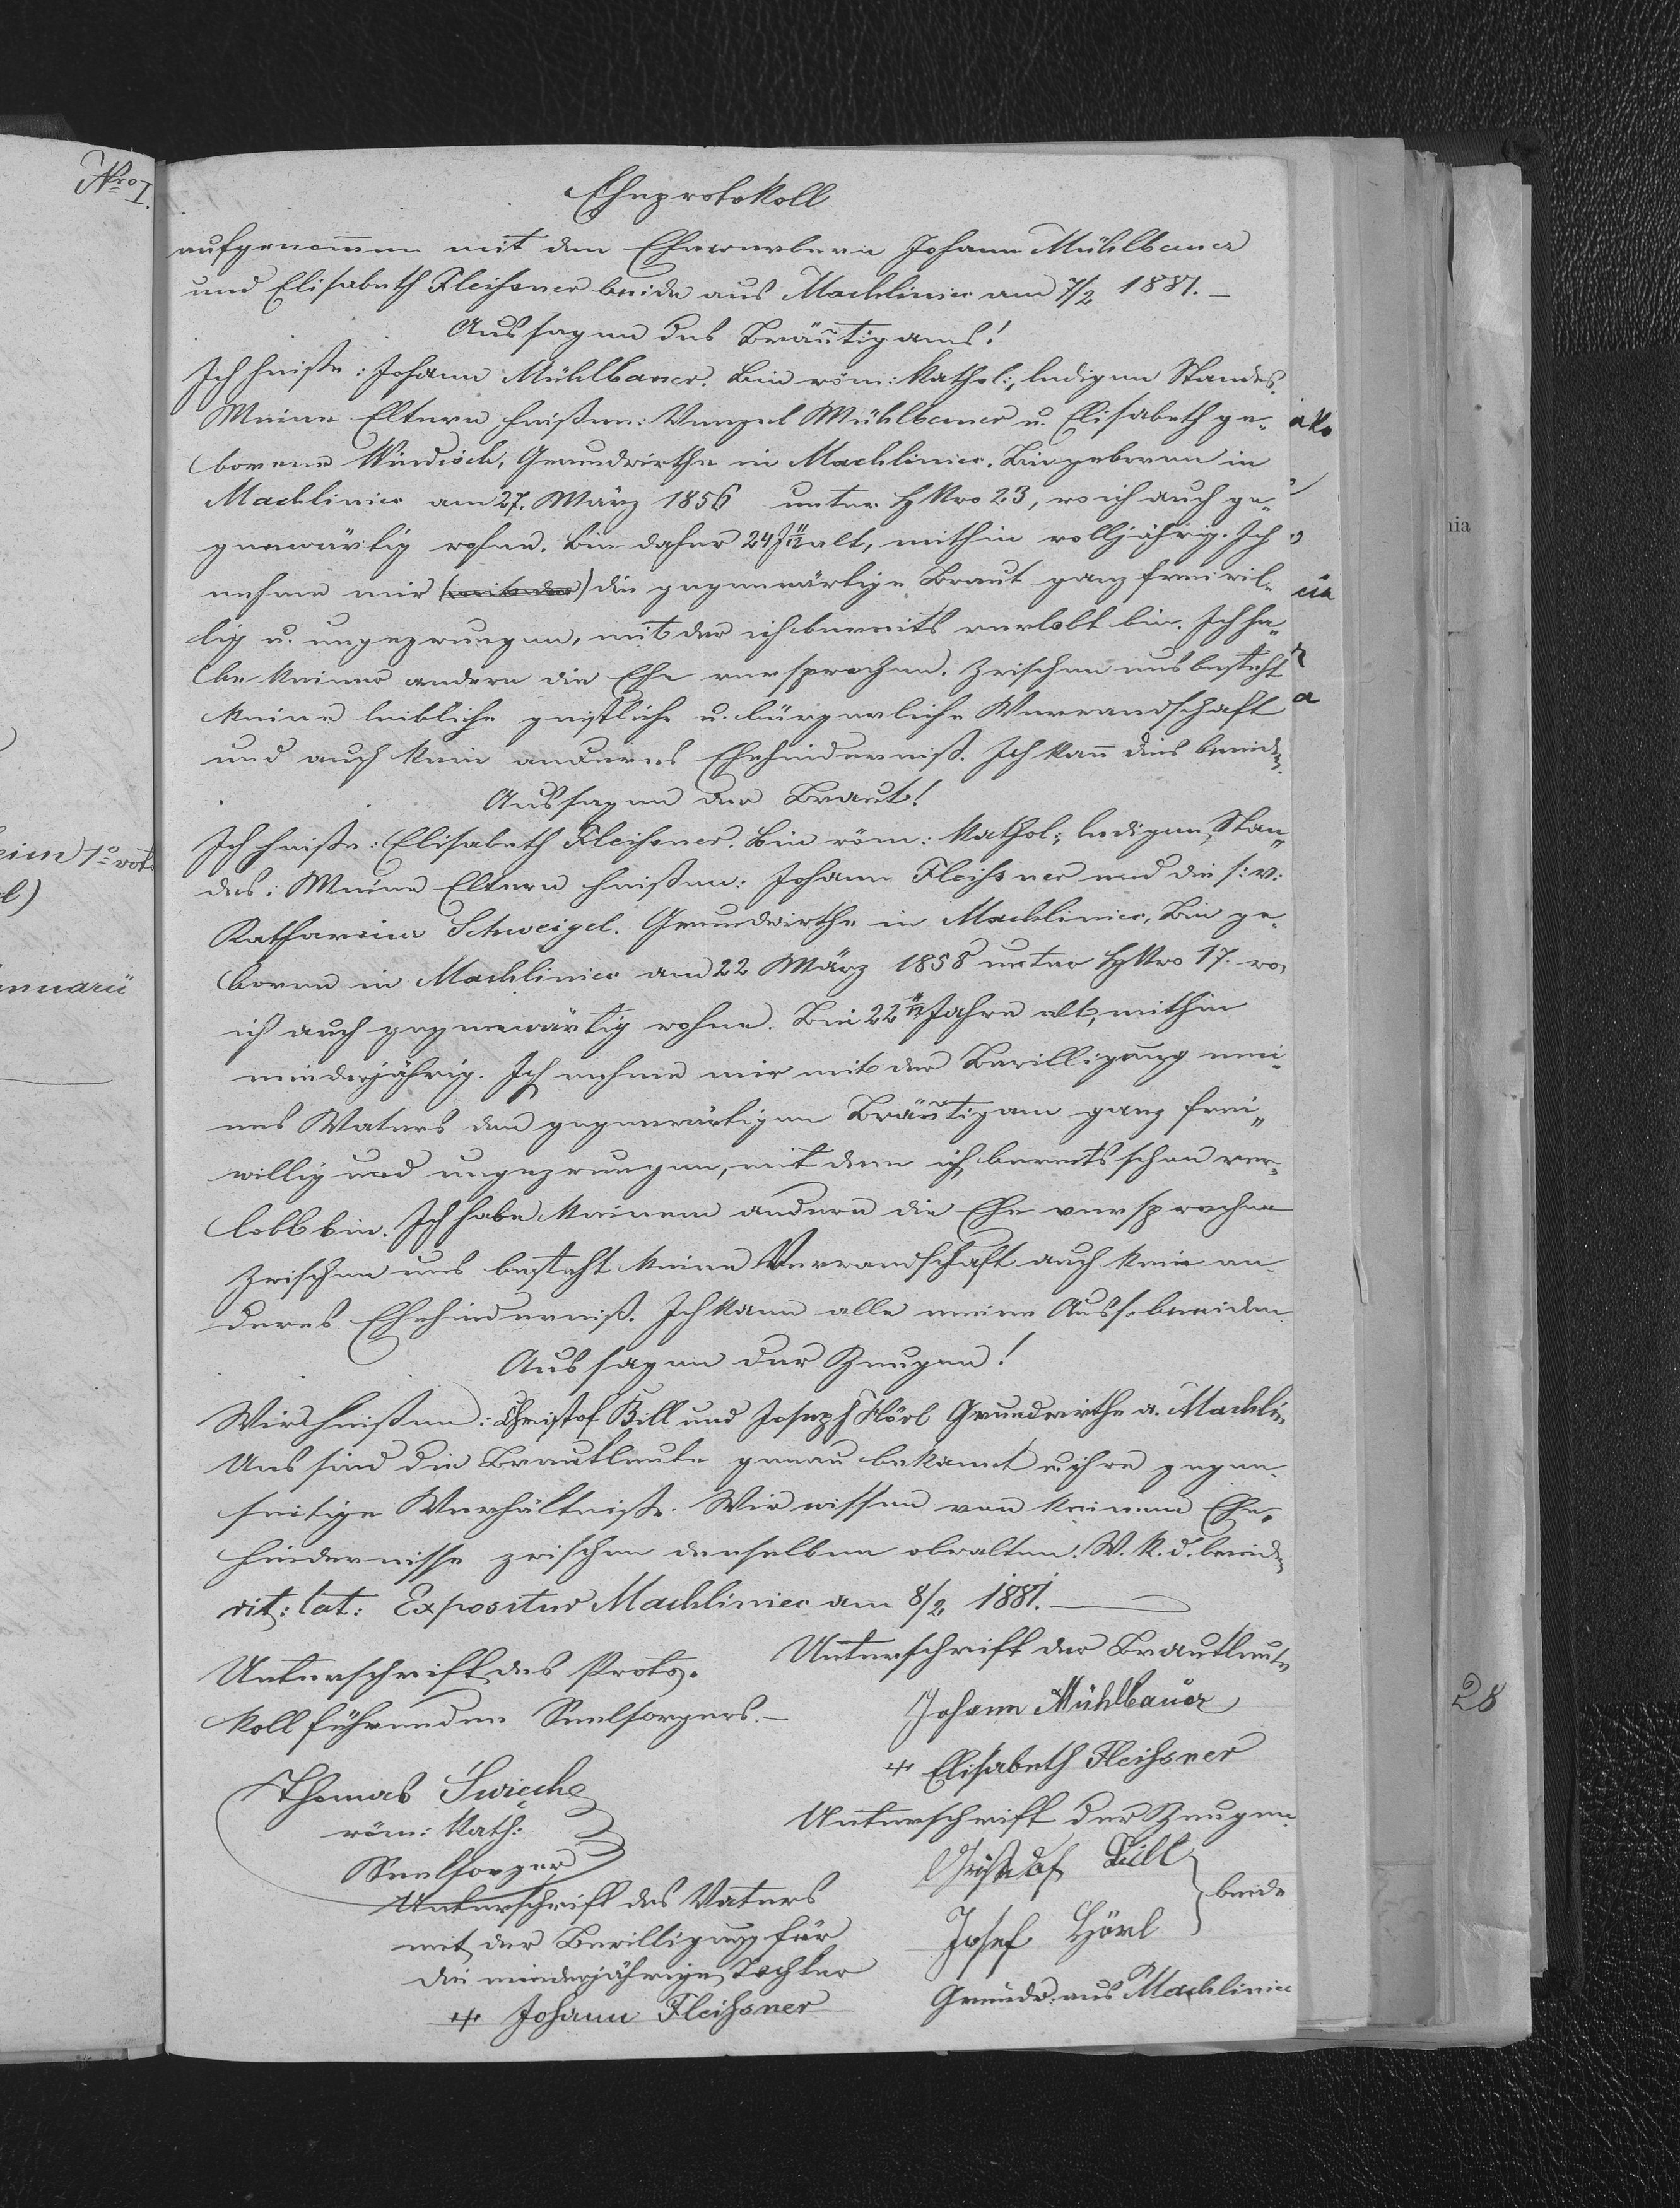 Nro I.
Eheprotokoll
aufgenommen mit den Ehewerbern Johann Mühlbauer
und Elisabeth Fleißner beide aus Machliniec am 7/2 1881. –
Aussagen des Bräutigams!
Ich heiße: Johann Mühlbauer. Bin röm: kathol:, ledigen Standes.
Meine Eltern heißen: Wenzel Mühlbauer u. Elisabeth ge-
borene Windisch, Grundwirthe in Machliniec. Bin geboren in
Machliniec am 27. März 1856 unter HNro 23, wo ich auch ge-
genwärtig wohne. Bin daher 24 J 11/12 alt, mithin volljährig. Ich
nehme mir (mit der) die gegenwärtige Braut ganz freiwil-
lig u. ungezwungen, mit der ich bereits verlobt bin. Ich ha-
be keiner andern die Ehe versprochen. Zwischen uns besteht
keine leibliche geistliche u. bürgerliche Verwandschaft
und auch kein anderes Ehehinderniß. Ich kann dies beeiden.
Aussagen der Braut!
Ich heiße: Elisabeth Fleißner. Bin röm: kathol:, ledigen Stan-
des. Meine Eltern heißen: Johann Fleißner und die s: v:
Katharina Schweigel. Grundwirthe in Machliniec, Bin ge-
boren in Machliniec am 22 März 1858 unter HNro 17. wo
ich auch gegenwärtig wohne. Bin 22 11/12 Jahre alt, mithin
minderjährig. Ich nehme mir mit der Bewilligung mei-
nes Vaters den gegenwärtigen Bräutigam ganz frei-
willig und ungezwungen, mit dem ich bereits schon ver-
lobt bin. Ich habe keinem andern die Ehe versprochen
Zwischen uns besteht keine Verwandschaft auch kein an-
deres Ehehinderniß. Ich kann alle meine Auss. beeiden.
Aussagen der Zeugen!
Wir heißen: Christof Bill und Joseph Hörl Grundwirthe a. Machlin
Uns sind die Brautleute genau bekannt u. ihre gegen-
seitige Verhältniße. Wir wissen von keinem Ehe-
hindernisse zwischen denselben obwalten. W. k. d. beeiden
rit: lat: Expositur Machliniec am 8/2 1881. –
Unterschrift des Proto-
koll führenden Seelsorgers. –
Thomas
röm: kath:
Seelsorger
Unterschrift des Vaters
mit der Bewilligung für
die minderjährige Tochter
+++ Johann Fleißner
Unterschrift der Brautleute
Johann Mühlbauer
+++ Elisabeth Fleißner
Unterschrift der Zeugen.
Christof Bill
Josef Hörl
beide
Grundw: aus Machliniec
28